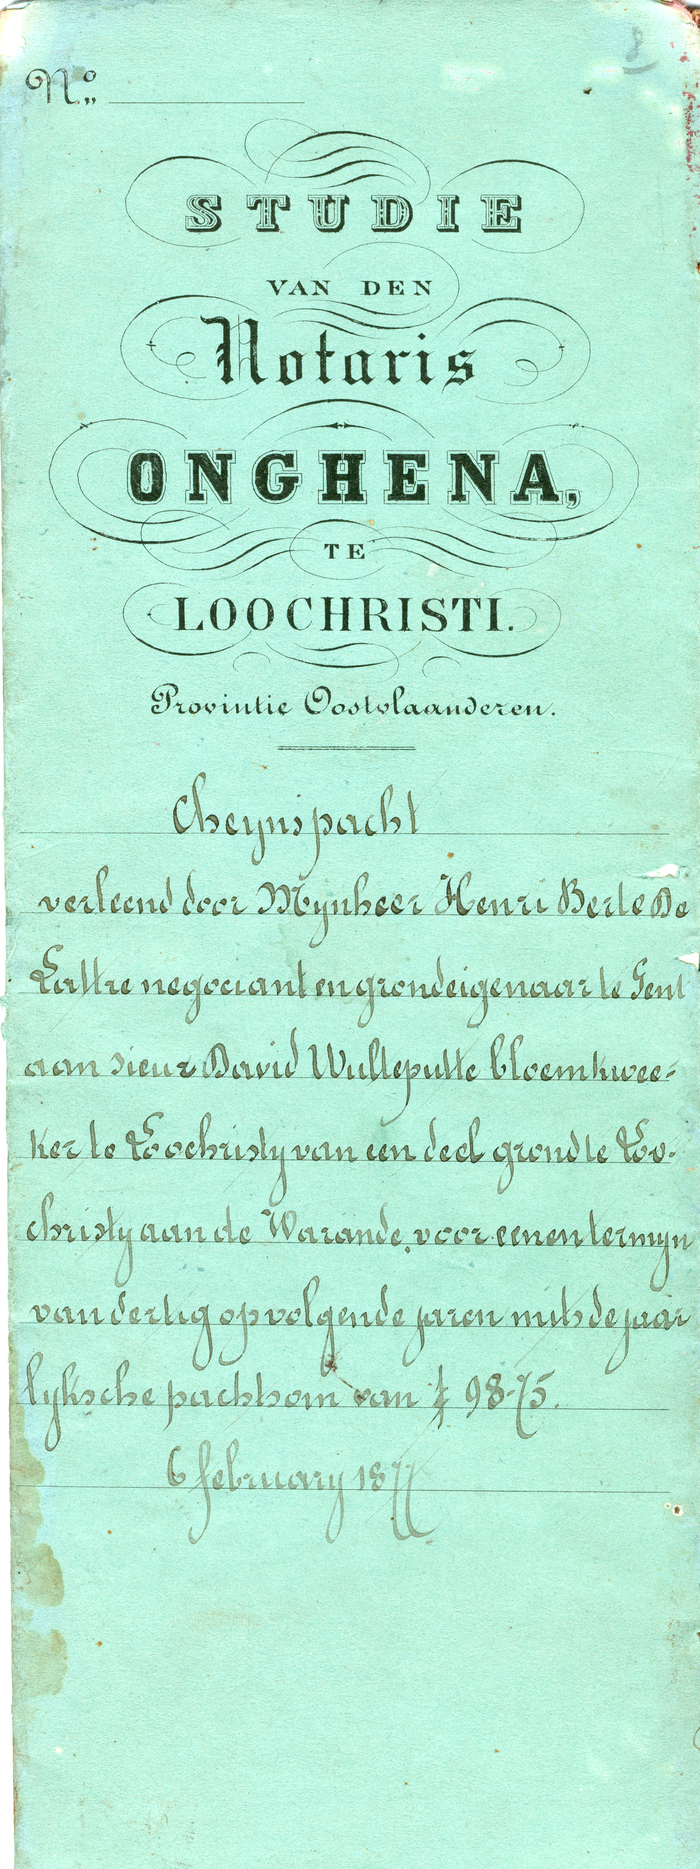 8
N.o
STUDIE
VAN DEN
Notaris
ONGHENA,
TE
LOOCHRISTI.
Provintie Oostvlaanderen.
Cheynspacht
verleend door Mynheer Henri Berte De
Lattre negociant en grondeigenaar te Gent
aan sieur David Wulteputte bloemkwee-
ker te Loochristy van een deel grond te Loo-
christy aan de Warande, voor eenen termyn
van dertig opvolgende jaren mits de jaar
lyksche pachtsom van f 98-75.
6 february 1877